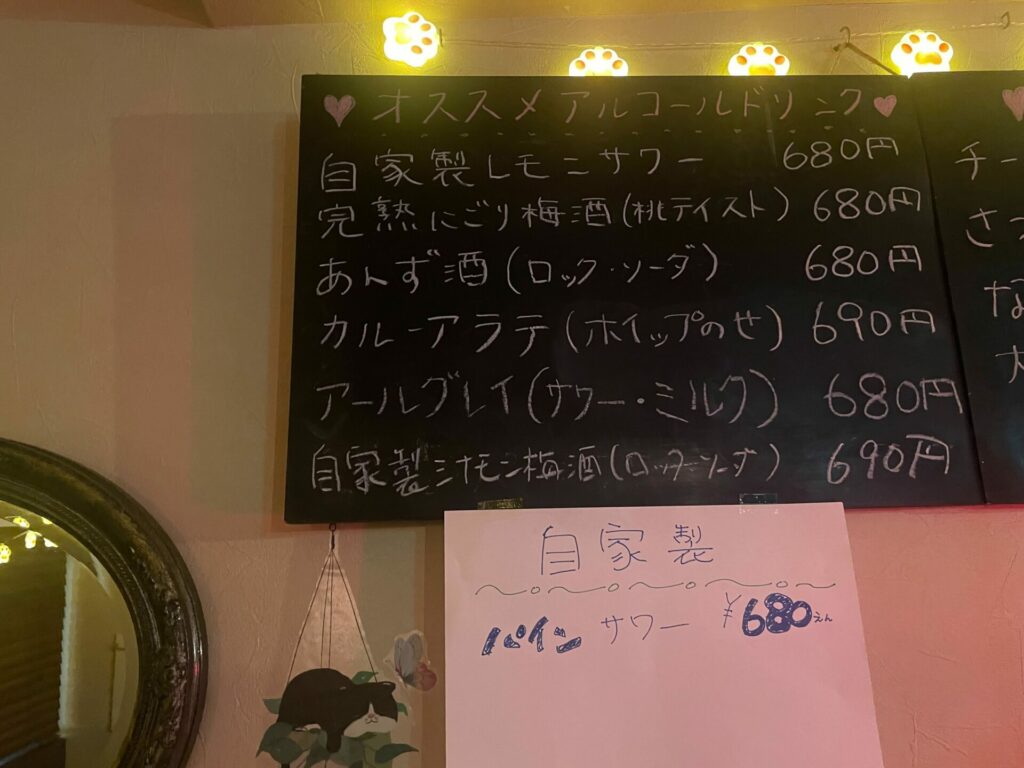 ♥オススメアルコールドリンク♥
自家製レモンサワー 680円
完熟にごり梅酒(桃テイスト) 680円
あんず酒(ロック・ソーダ) 680円
カルーアラテ(ホイップのせ) 690円
アールグレイ(サワー・ミルク) 680円
自家製シナモン梅酒(ロック・ソーダ) 690円
チー
さっ
な
大
自家製
パインサワー ¥680えん